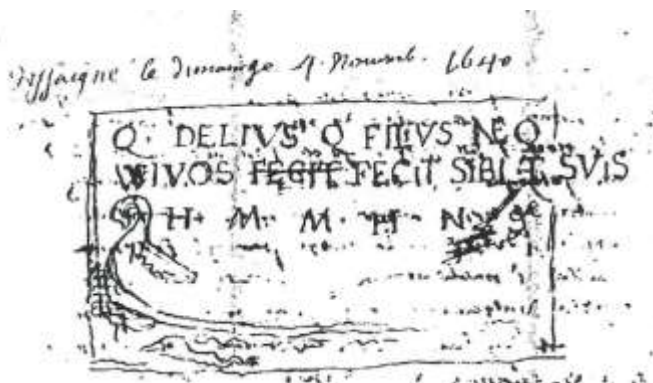 le dimange 4 Nouemb. 1640
Q DELIVS Q FILIVS NEQ
WIVOS FECIT FECIT SIBI ET SVIS
H M M H N